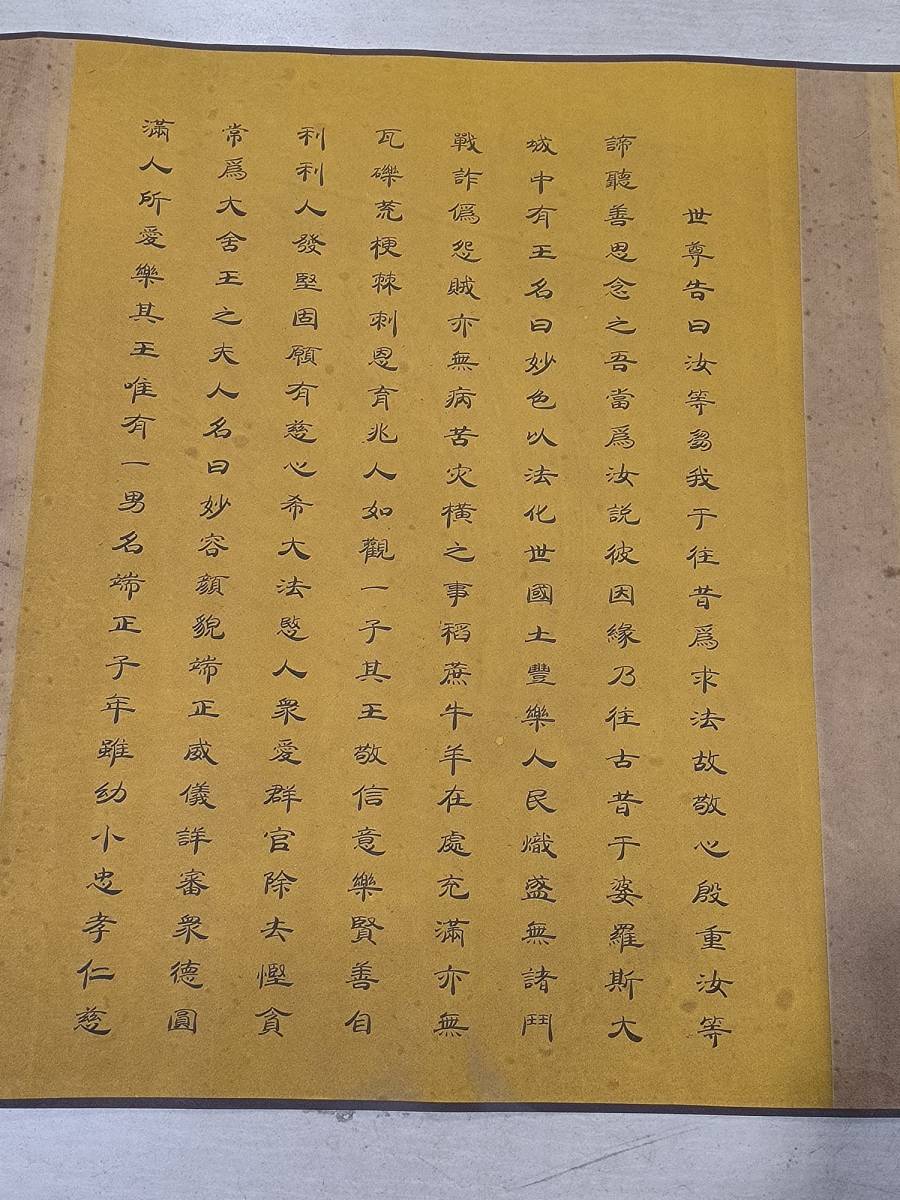 世尊告曰汝等芻我于往昔爲求法故敬心殷重汝等
諦聽善思念之吾當爲汝説彼因緣乃往古昔于婆羅斯大
城中有王名曰妙色以法化世國土豐樂人民熾盛無諸鬥
戰詐僞怨賊亦無病苦灾橫之事稻蔗牛羊在處充滿亦無
瓦礫荒梗棘刺恩育兆人如觀一子其王敬信意樂賢善自
利利人發堅固願有慈心希大法愍人衆愛群官除去慳貪
常爲大舍王之夫人名曰妙容顏貌端正威儀詳審衆德圓
滿人所愛樂其王唯有一男名端正子年雖幼小忠孝仁慈